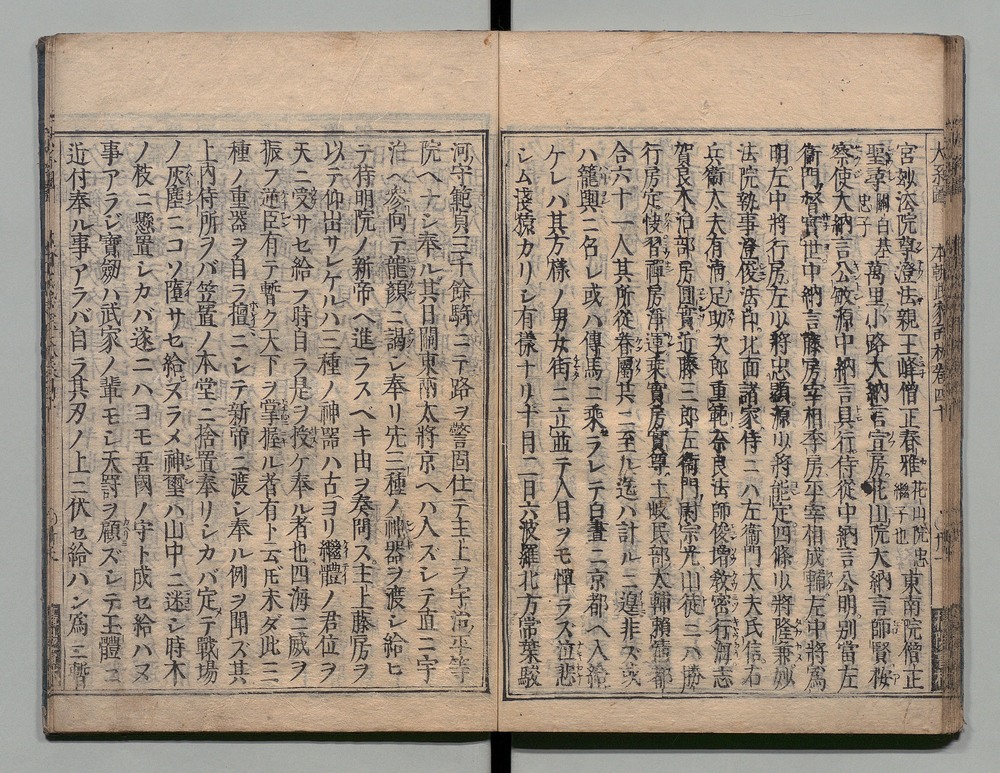 宮妙法院尊澄法親王峰僧正春雅花山院忠繼子也東南院僧正
聖尋關白基忠子萬里小路大納言宣房花山院大納言師賢桉
察使大納言公敏源中納言具行侍從中納言公明別當左
衛門督實世中納言藤房宰相季房平宰相成輔左中將爲
明左中將行房左少將忠顯源少將能定四條少將隆兼妙
法院執事澄俊法印北面諸家侍ニハ左衛門大夫氏信右
兵衛大夫有清足助次郎重範奈良法師俊増教密行海志
賀良木治部房圓實近藤三郎左衛門尉宗光山徒ニハ勝
行房定快習禪房淨運乘實房實尊土岐民部大輔頼
合六十一人其所從眷屬共ニ至ル迄ハ計ルニ遑非ス或
ハ籠輿ニ召レ或ハ傳馬ニ乘ラレテ白晝ニ京都ヘ入給
ケレハ其方樣ノ男女街ニ立並テ人目ヲモ憚ラス泣悲
シム淺猿カリシ有樣ナリ十月二日六波羅北方常葉駿
河守範貞三千餘騎ニテ路ヲ警固仕テ主上ヲ宇治平等
院ヘナシ奉ル其日關東兩大將京ヘハ入ズシテ直ニ宇
治ヘ參向テ龍顔ニ謁シ奉リ先三種ノ神器ヲ渡シ給ヒ
テ持明院ノ新帝ヘ進ラスベキ由ヲ奏聞ス主上藤房ヲ
以テ仰出サレケルハ三種ノ神器ハ古ヨリ繼體ノ君位ヲ
天ニ受サセ給フ時自ラ是ヲ授ケ奉ル者也四海ニ威ヲ
振フ逆臣有テ暫ク天下ヲ掌握ル者有ト云ドモ未ダ此三
種ノ重器ヲ自ラ擅ニシテ新帝ニ渡シ奉ル例ヲ聞ズ其
上内侍所ヲバ笠置ノ本堂ニ捨置奉リシカバ定テ戰場
ノ灰塵ニコソ墮サセ給ズラメ神璽ハ山中ニ迷シ時木
ノ枝ニ懸置シカバ遂ニハヨモ吾國ノ守ト成セ給ハヌ
事アラジ寶劒ハ武家ノ輩モシ天罸ヲ顧ズシテ玉體ニ
近付奉ル事アラバ自ラ其刃ノ上ニ伏セ給ハン爲ニ暫